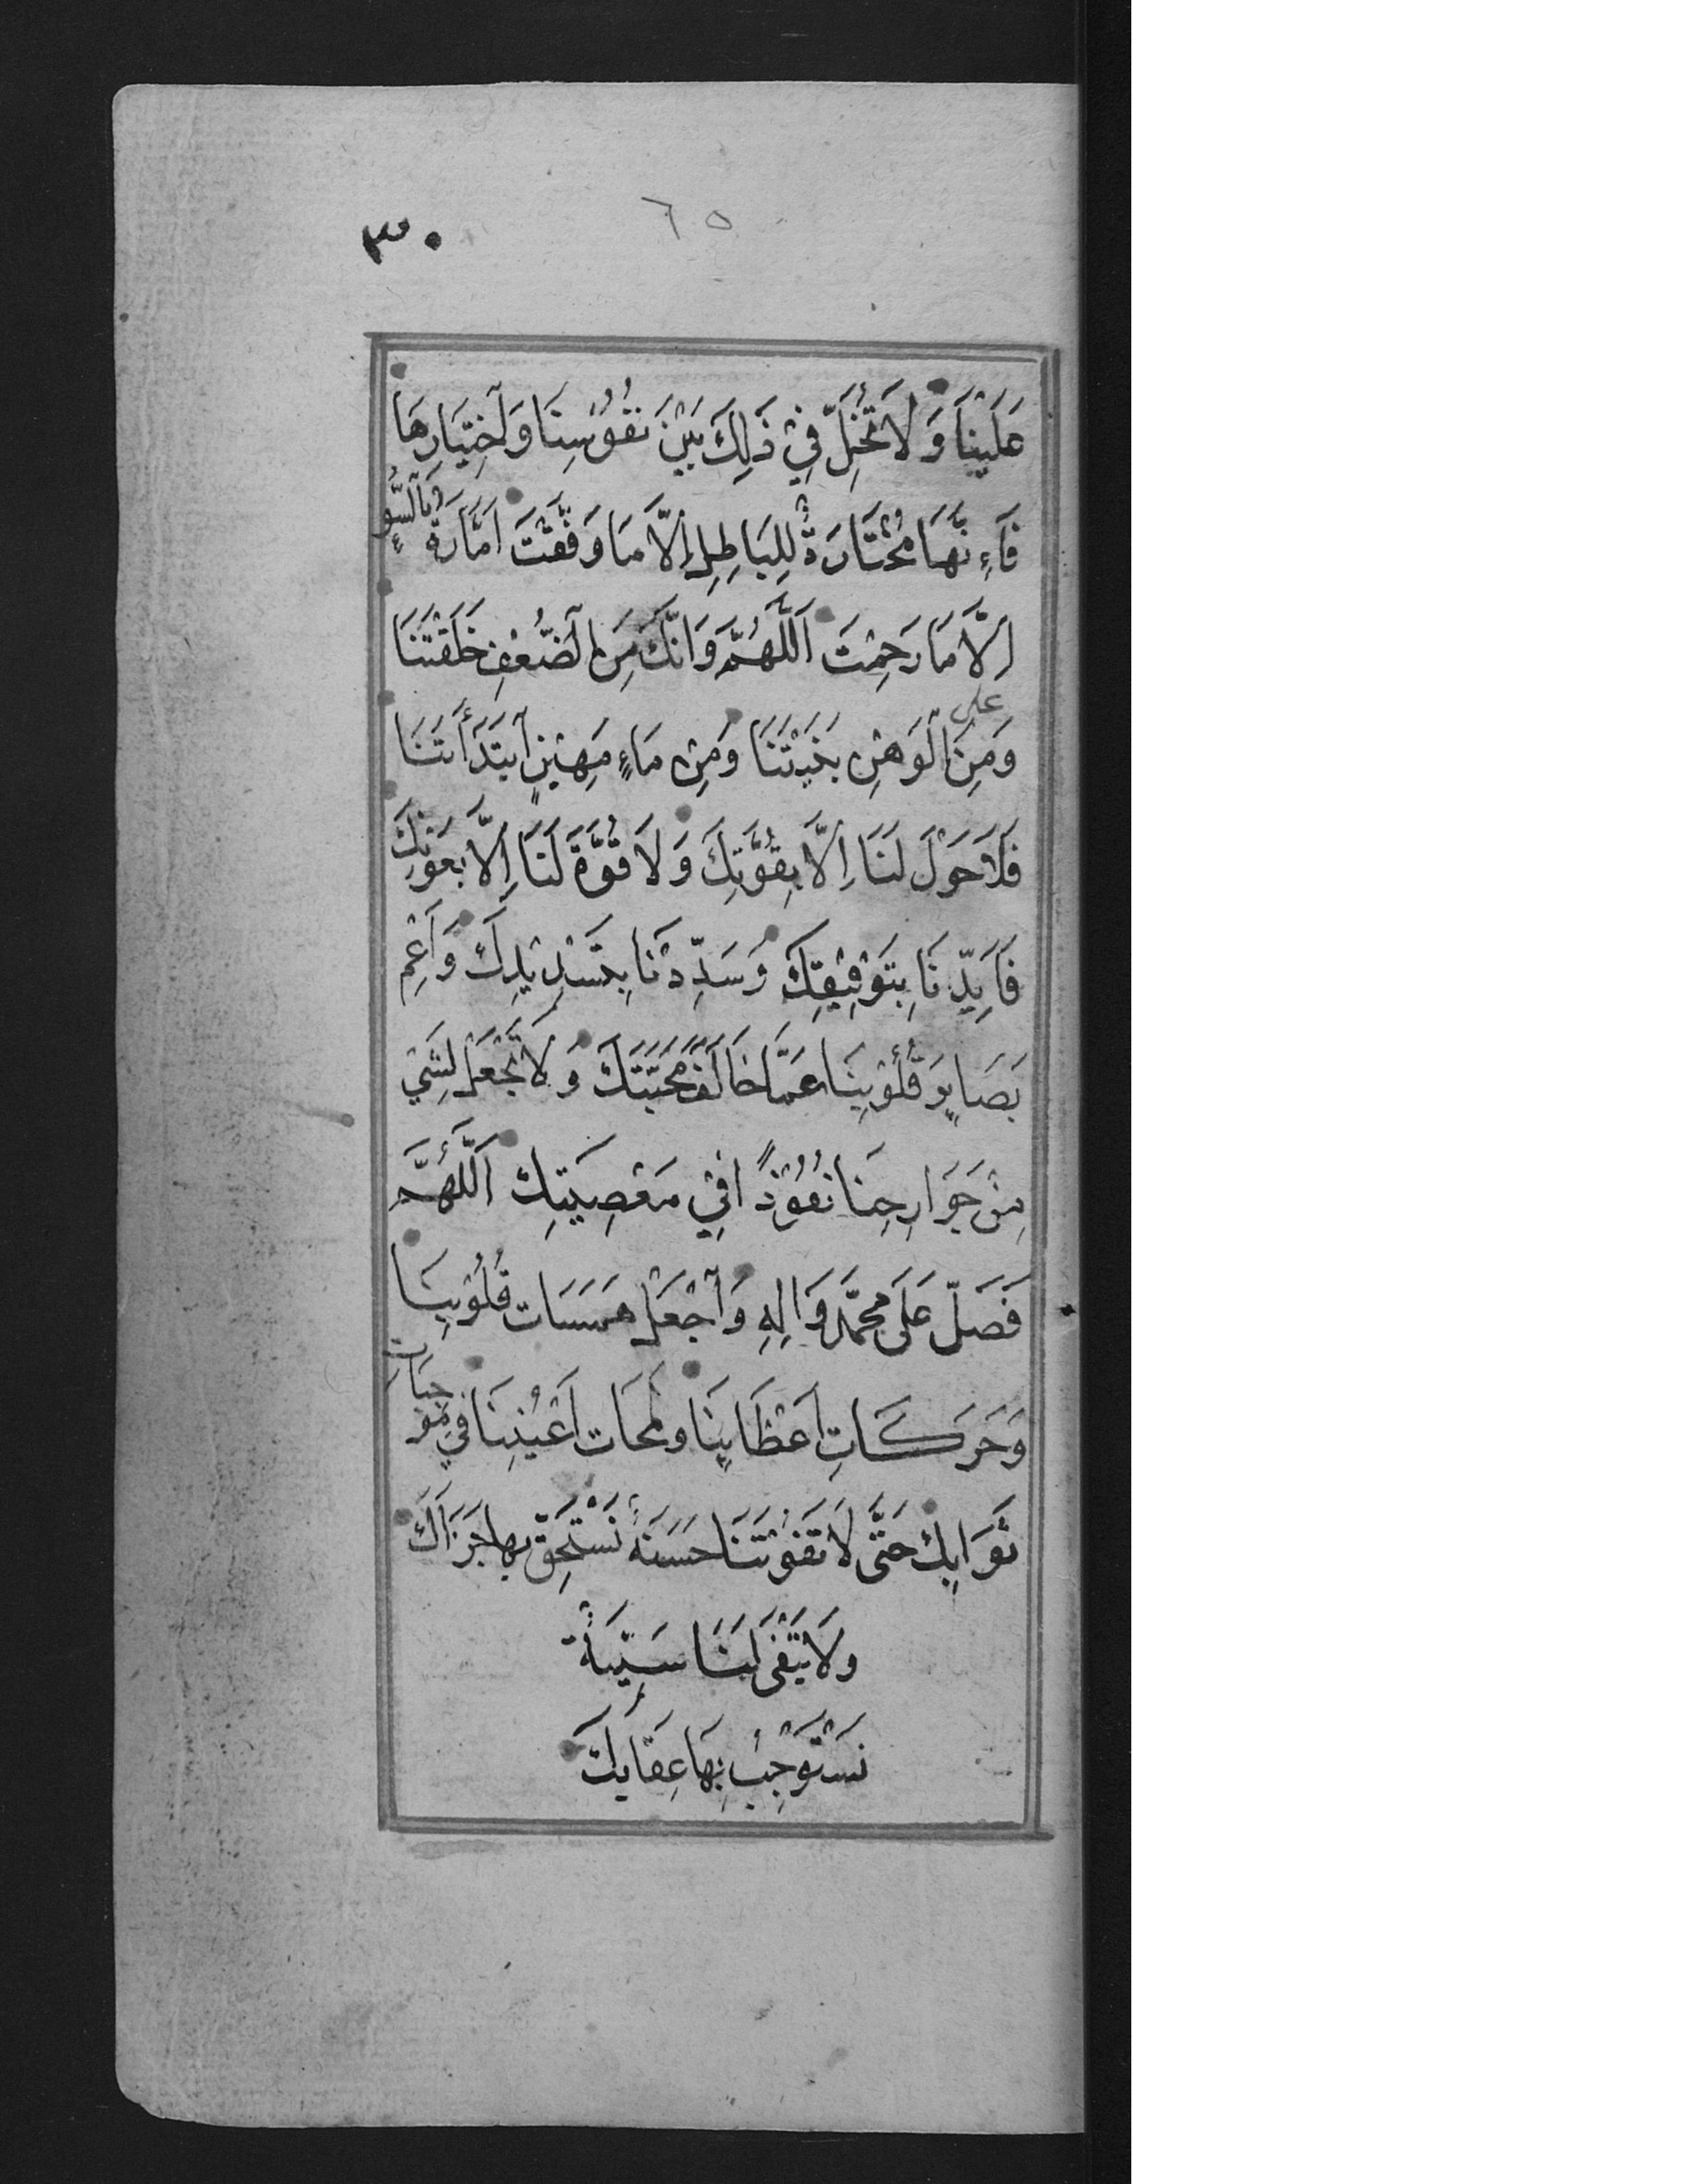 ٣٠ ٦٥
عَلَيْنَا وَلَا تُخَلِّ فِيْ ذٰلِكَ بَيْنَ نُفُوْسِنَا وَاخْتِيَارِهَا
فَاِنَّهَا مُخْتَارَةٌ لِلْبَاطِلِ اِلَّا مَا وَفَّقْتَ اَمَّارَةٌ بِالسُّوْءِ
اِلَّا مَا رَحِمْتَ اَللّٰهُمَّ وَاِنَّكَ مِنَ الضُّعْفِ خَلَقْتَنَا
على
وَمِنَ الْوَهْنِ بَنَيْتَنَا وَمِنْ مَاءٍ مَهِيْنٍ ابْتَدَأْتَنَا
فَلَا حَوْلَ لَنَا اِلَّا بِقُوَّتِكَ وَلَا قُوَّةَ لَنَا اِلَّا بِعَوْنِكَ
فَاَيِّدْنَا بِتَوْفِيْقِكَ وَسَدِّدْنَا بِتَسْدِيْدِكَ وَاَعْمِ
بَصَايِرَ قُلُوْبِنَا عَمَّا خَالَفَ مَحَبَّتَكَ وَلَا تَجْعَلْ لِشَيْ
مِنْ جَوَارِحِنَا نُفُوْذًا فِيْ مَعْصِيَتِكَ اَللّٰهُمَّ
فَصَلِّ عَلَى مُحَمَّدٍ وَاٰلِهِ وَاجْعَلْ هَمَسَات قُلُوْبِنَا
وَحَرَكَاتِ اَعْظَايِنَا وَلَمَحَات اَعْيُنِنَا فِيْ مُوْجِبَاتِ
ثَوَابِكَ حَتَّى لَا تَفُوْتَنَا حَسَنَةٌ نَسْتَحِقُّ بِهَا جَزَاَكَ
وَلَا يَبْقَى لَنَا سَيِّيَةٌ
نَسْتَوْجِبُ بِهَا عِقَابَكَ